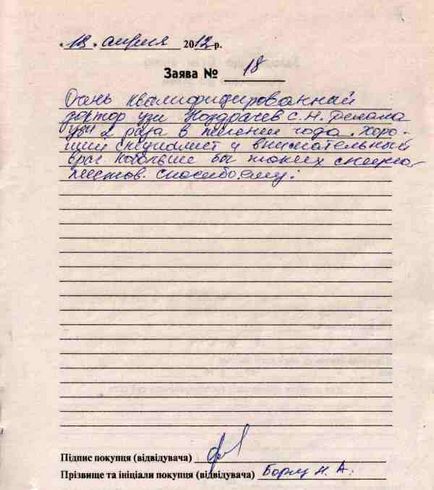 « 12 » апреля 2012 р.
Заява № 18
Очень квалифицированный
доктор узи Ноздрачев С.Н. Делала
узи 2 раза в течении года. Хоро-
ший специалист и внимательный
врач побольше бы таких специа-
листов. Спасибо ему!
Підпис покупця (відвідувача)
Прізвище та ініціали покупця (відвідувача) Н. А.